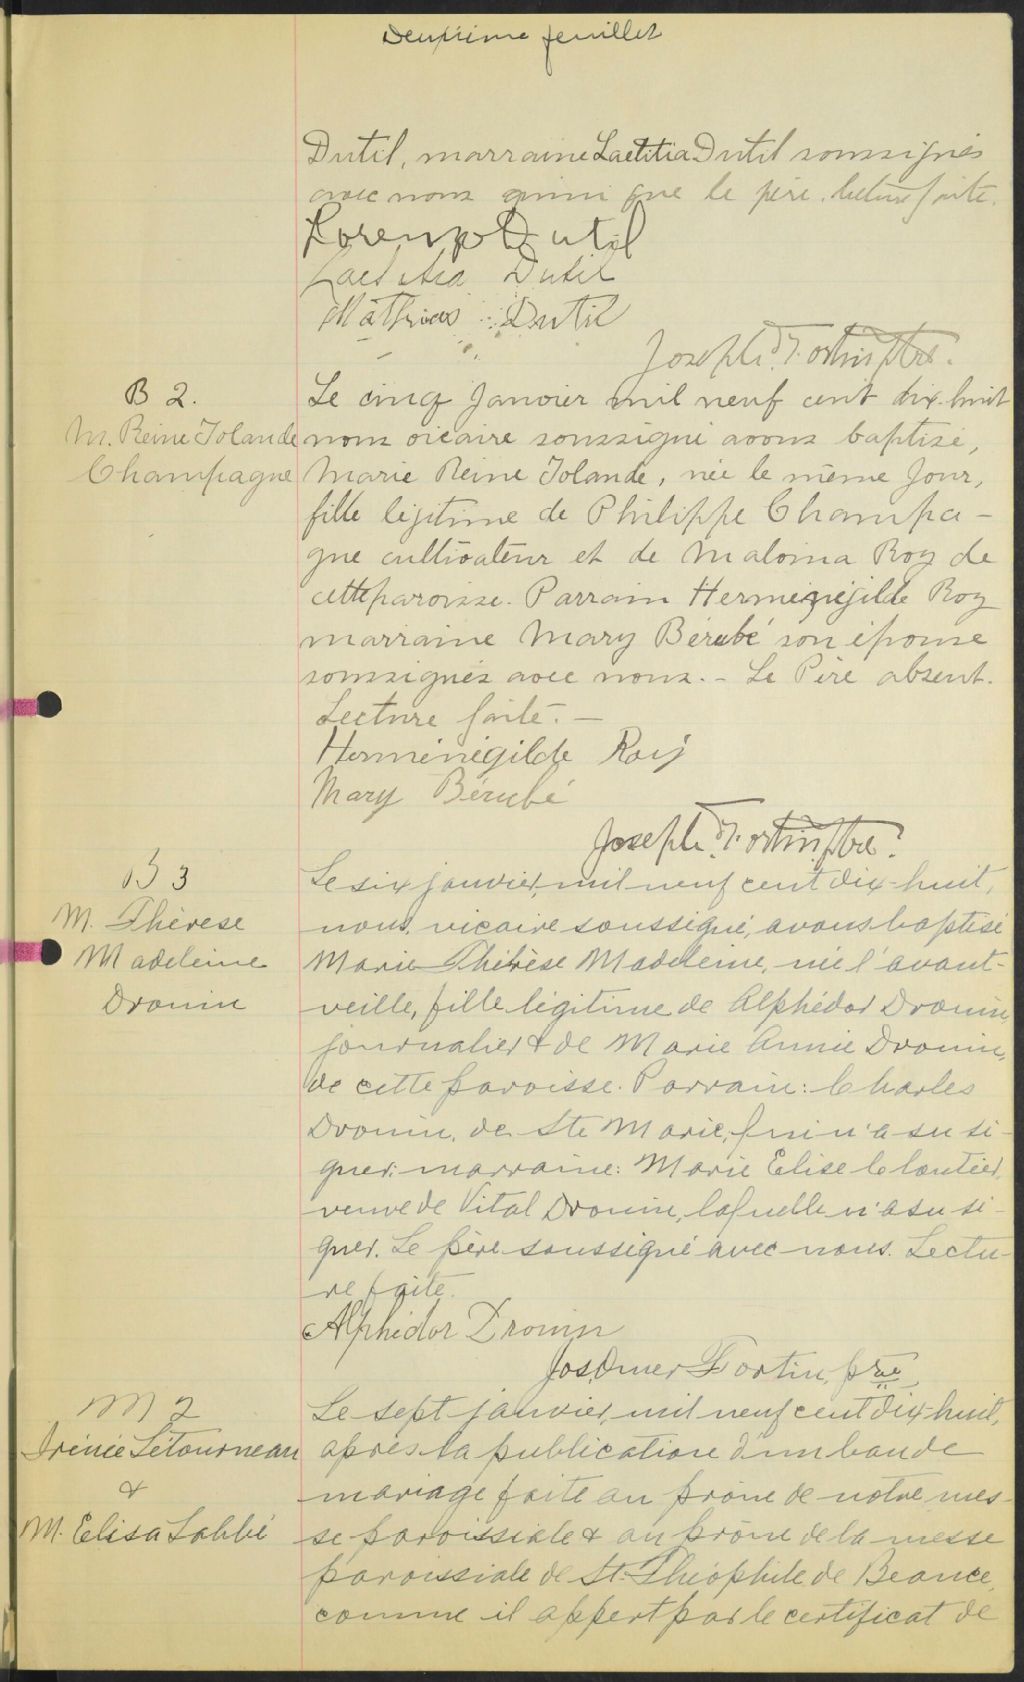 Deuxième feuillet
Dutil, marraine Laetitia Dutil soussignés
avec nous ainsi que le père. lecture faite.
Lorenzo Dutil
Laetitia Dutil
Mathias Dutil
Joseph. Fortin ptre.
B 2.
M. Reine Iolande
Champagne
Le cinq Janvier mil neuf cent dix-huit
nous vicaire soussigné avons baptisé,
Marie Reine Iolande, née le même Jour,
fille légitime de Philippe Champa-
gne cultivateur et de Malvina Roy de
cette paroisse. Parrain Herménégilde Roy
marraine Mary Bérubé son épouse
soussignés avec nous. - Le Père absent.
Lecture faite. -
Herménégilde Roy
Mary Bérubé
Joseph. Fortin ptre.
B 3
M. Thérèse
Madeleine
Drouin
Le six janvier, mil neuf cent dix-huit,
nous, vicaire soussigné, avons baptisé
Marie Thérèse Madeleine, née l'avant-
veille, fille légitime de Alphédor Drouin,
journalier & de Marie Annie Drouin,
de cette paroisse. Parrain: Charles
Drouin, de Ste Marie, qui n'a su si-
gner; marraine: Marie Elise Cloutier,
veuve de Vital Drouin, laquelle n'a su si-
gner. Le père soussigné avec nous. Lectu-
re faite.
Alphédor Drouin
Jos. Omer Fortin, ptre
M 2
Irénée Létourneau
&
M. Elisa Labbé
Le sept janvier, mil neuf cent dix-huit,
après la publication d'un ban de
mariage faite au prône de notre mes-
se paroissiale & au prône de la messe
paroissiale de St. Théophile de Beauce,
comme il appert par le certificat de